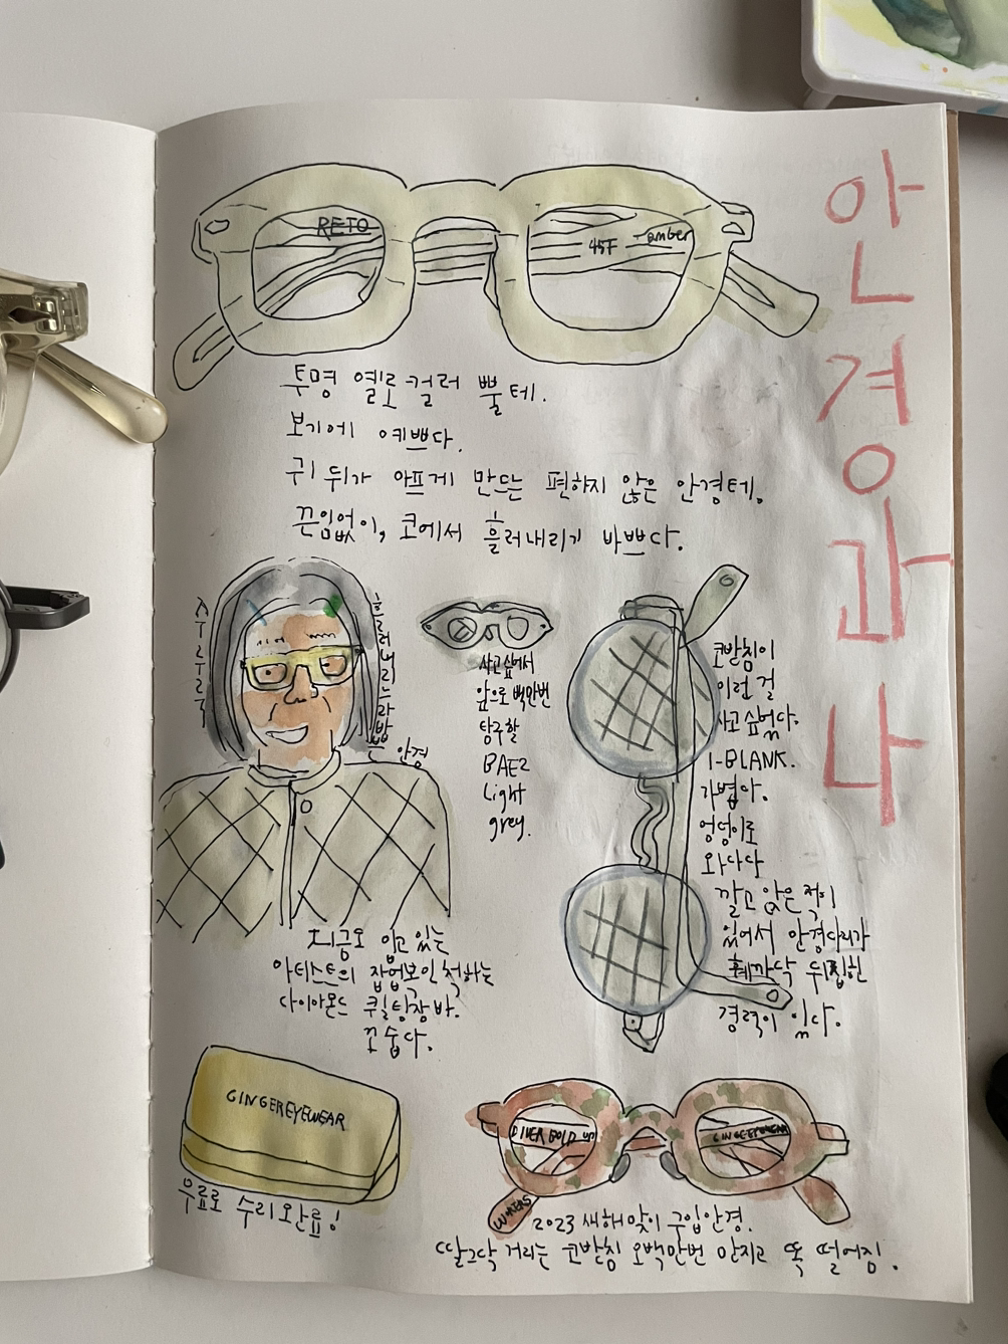 안경과 나
RETO
45F amber
투명 옐로 컬러 뿔테.
보기에 예쁘다.
귀 뒤가 아프게 만드는 편하지 않은 안경테.
끈임없이, 코에서 흘러내리기 바쁘다.
주루루룩
흘러내리느라 바쁜 안경
사고싶어서
앞으로 백만번
탐구할
BAE2
Light
grey.
코받침이
이런 걸
사고 싶었다.
1-BLANK.
가볍다.
엉덩이로
와다다
깔고 앉은 적이
있어서 안경다리가
홰까닥 뒤집힌
경력이 있다.
지금도 입고 있는
아티스트의 잡업복인 척하는
다이아몬드 퀼팅잠바.
꼬숩다.
GINGEREYEWEAR
무료로 수리완료!
DIVER GOLD
GINGEREYEWEAR
2023 새해맞이 구입안경.
딸그닥 거리는 코받침 오백만번 만지고 똑 떨어짐.